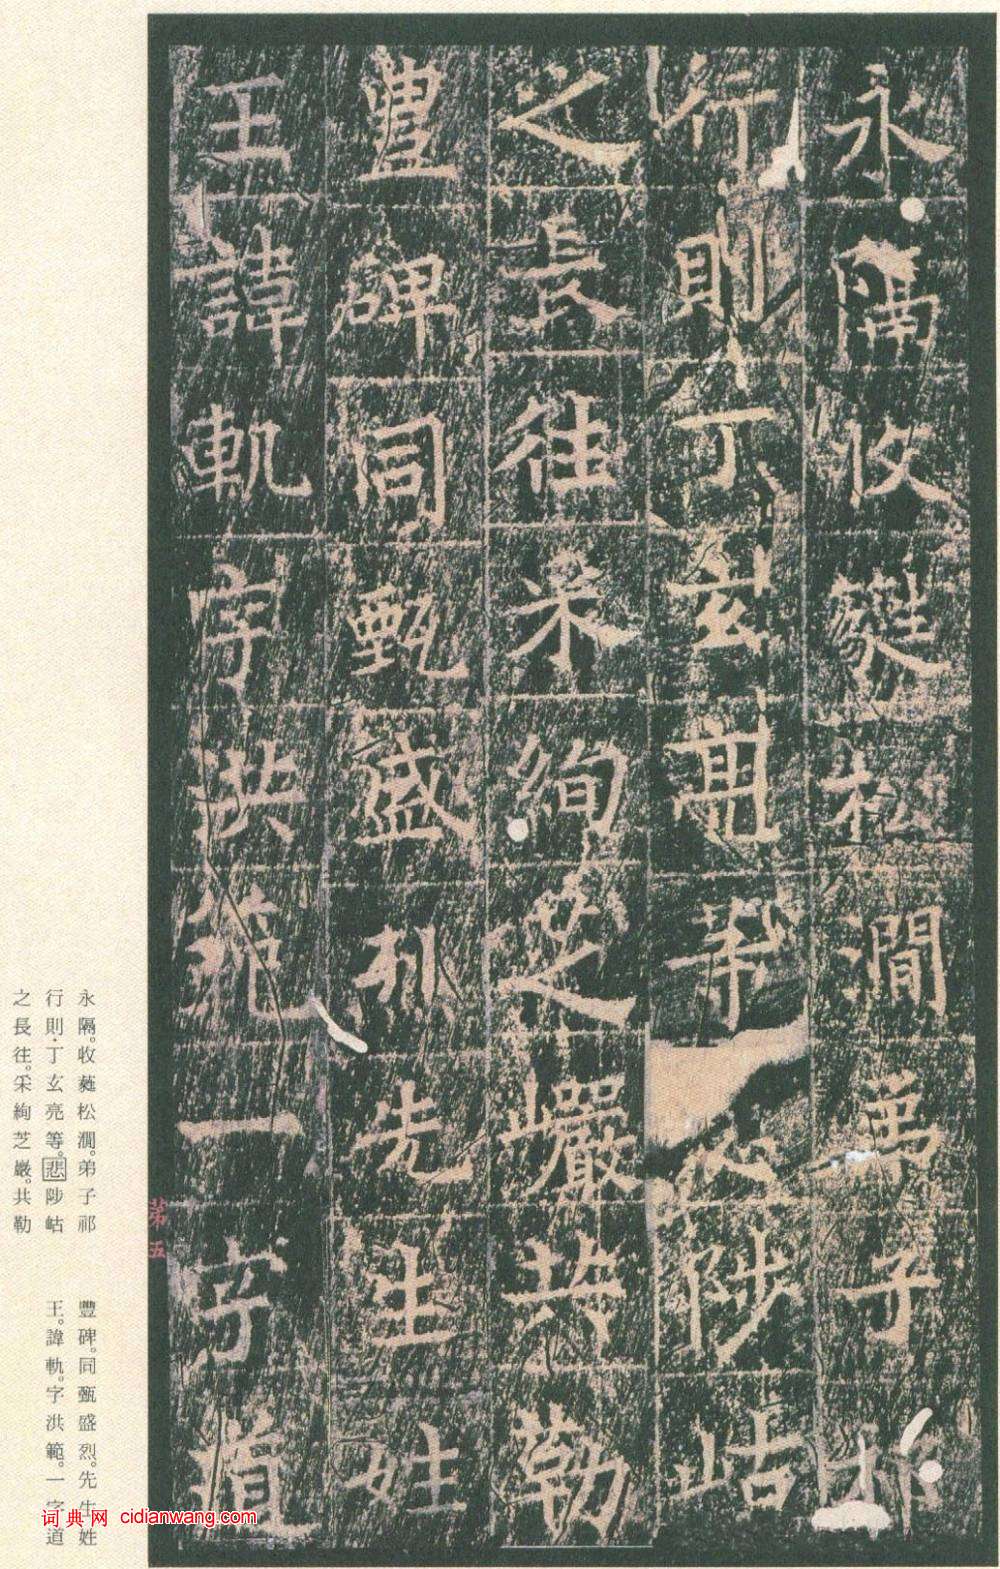 永隔收䕲松澗弟子祁
行則丁玄亮等悲陟岵
之長往采絢芝巖共勒
豐碑同甄盛烈先生姓
王諱軌字洪範一字道
第五
永隔。收蕤松澗。弟子祁
行則·丁玄亮等。悲陟岵
之長往。采絢芝巖。共勒
豐碑。同甄盛烈。先生姓
王。諱軌。字洪範。一字道
词典网 cidianwang.com